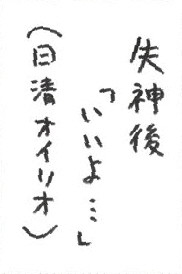 失神後
「いいよ…」
（日清オイリオ）